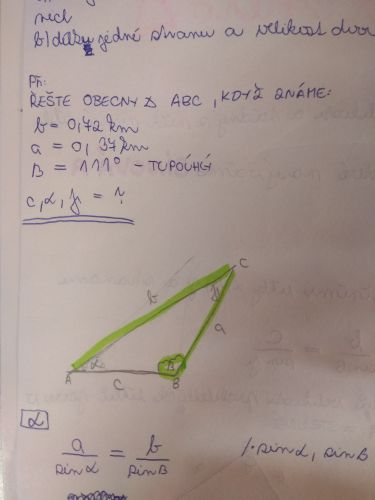 b) délku jedné stranu a velikost dvou
Př:
ŘEŠTE OBECNÝ △ ABC, KDYŽ ZNÁME:
b = 0,72 km
a = 0,37 km
β = 111° - TUPOÚHLÝ
c, α, γ = ?
C
b
γ
a
α
β
A
c
B
α
a/sin α = b/sin β /· sin α, sin β